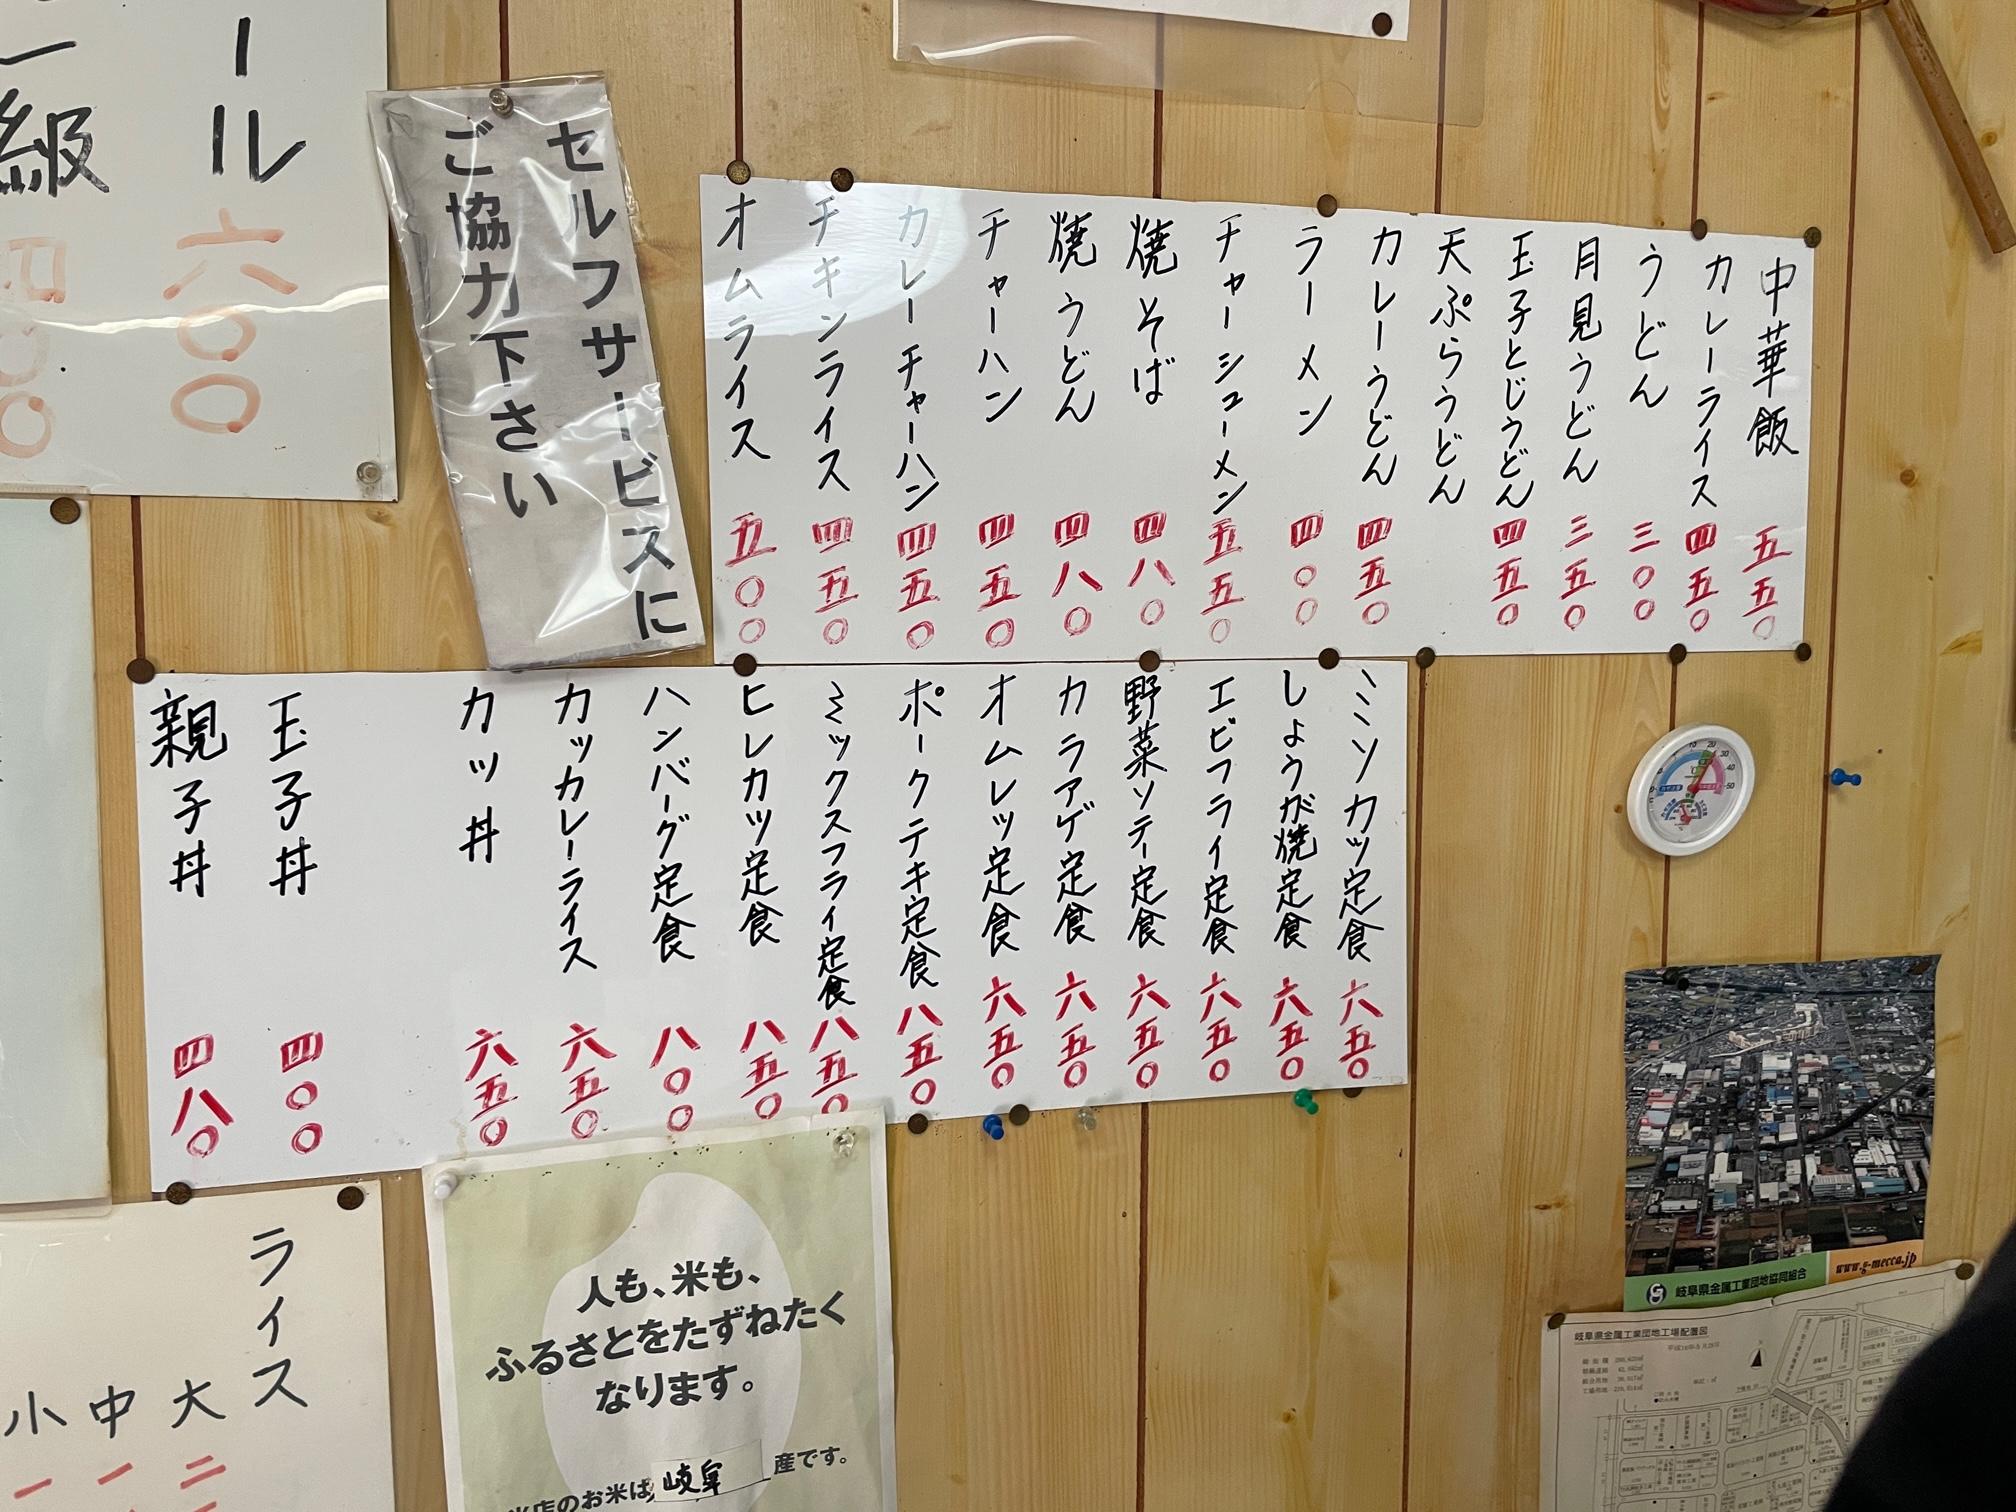 ール 六〇〇
級 四〇〇
セルフサービスに
ご協力下さい
中華飯 五五〇
カレーライス 四五〇
うどん 三〇〇
月見うどん 三五〇
玉子とじうどん 四五〇
天ぷらうどん
カレーうどん 四五〇
ラーメン 四〇〇
チャーシューメン 五五〇
焼そば 四八〇
焼うどん 四八〇
チャーハン 四五〇
カレーチャーハン 四五〇
チキンライス 四五〇
オムライス 五〇〇
ミソカツ定食 六五〇
しょうが焼定食 六五〇
エビフライ定食 六五〇
野菜ソテー定食 六五〇
カラアゲ定食 六五〇
オムレツ定食 六五〇
ポークテキ定食 八五〇
ミックスフライ定食 八五〇
ヒレカツ定食 八五〇
ハンバーグ定食 八〇〇
カツカレーライス 六五〇
カツ丼 六五〇
玉子丼 四〇〇
親子丼 四八〇
ライス
大 二
中 一
小 一
人も、米も、
ふるさとをたずねたく
なります。
当店のお米は岐阜産です。
www.g-mecca.jp
岐阜県金属工業団地協同組合
岐阜県金属工業団地工場配置図